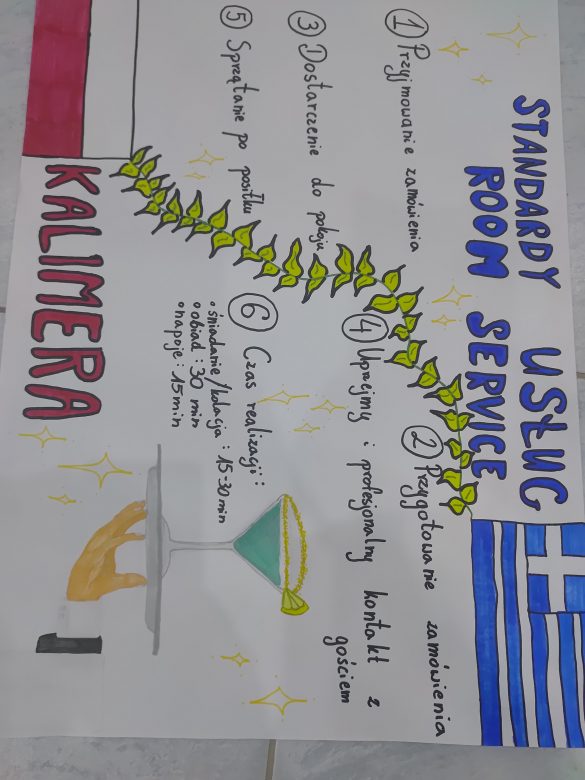 STANDARDY USŁUG
ROOM SERVICE
① Przyjmowanie zamówienia
② Przygotowanie zamówienia
③ Dostarczenie do pokoju
④ Uprzejmy i profesjonalny kontakt z
gościem
⑤ Sprzątanie po posiłku
⑥ Czas realizacji:
• śniadanie/kolacja: 15-30 min
• obiad: 30 min
• napoje: 15 min
KALIMERA